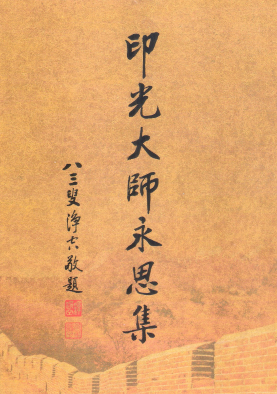 印光大師永思集
八三叟淨空敬題